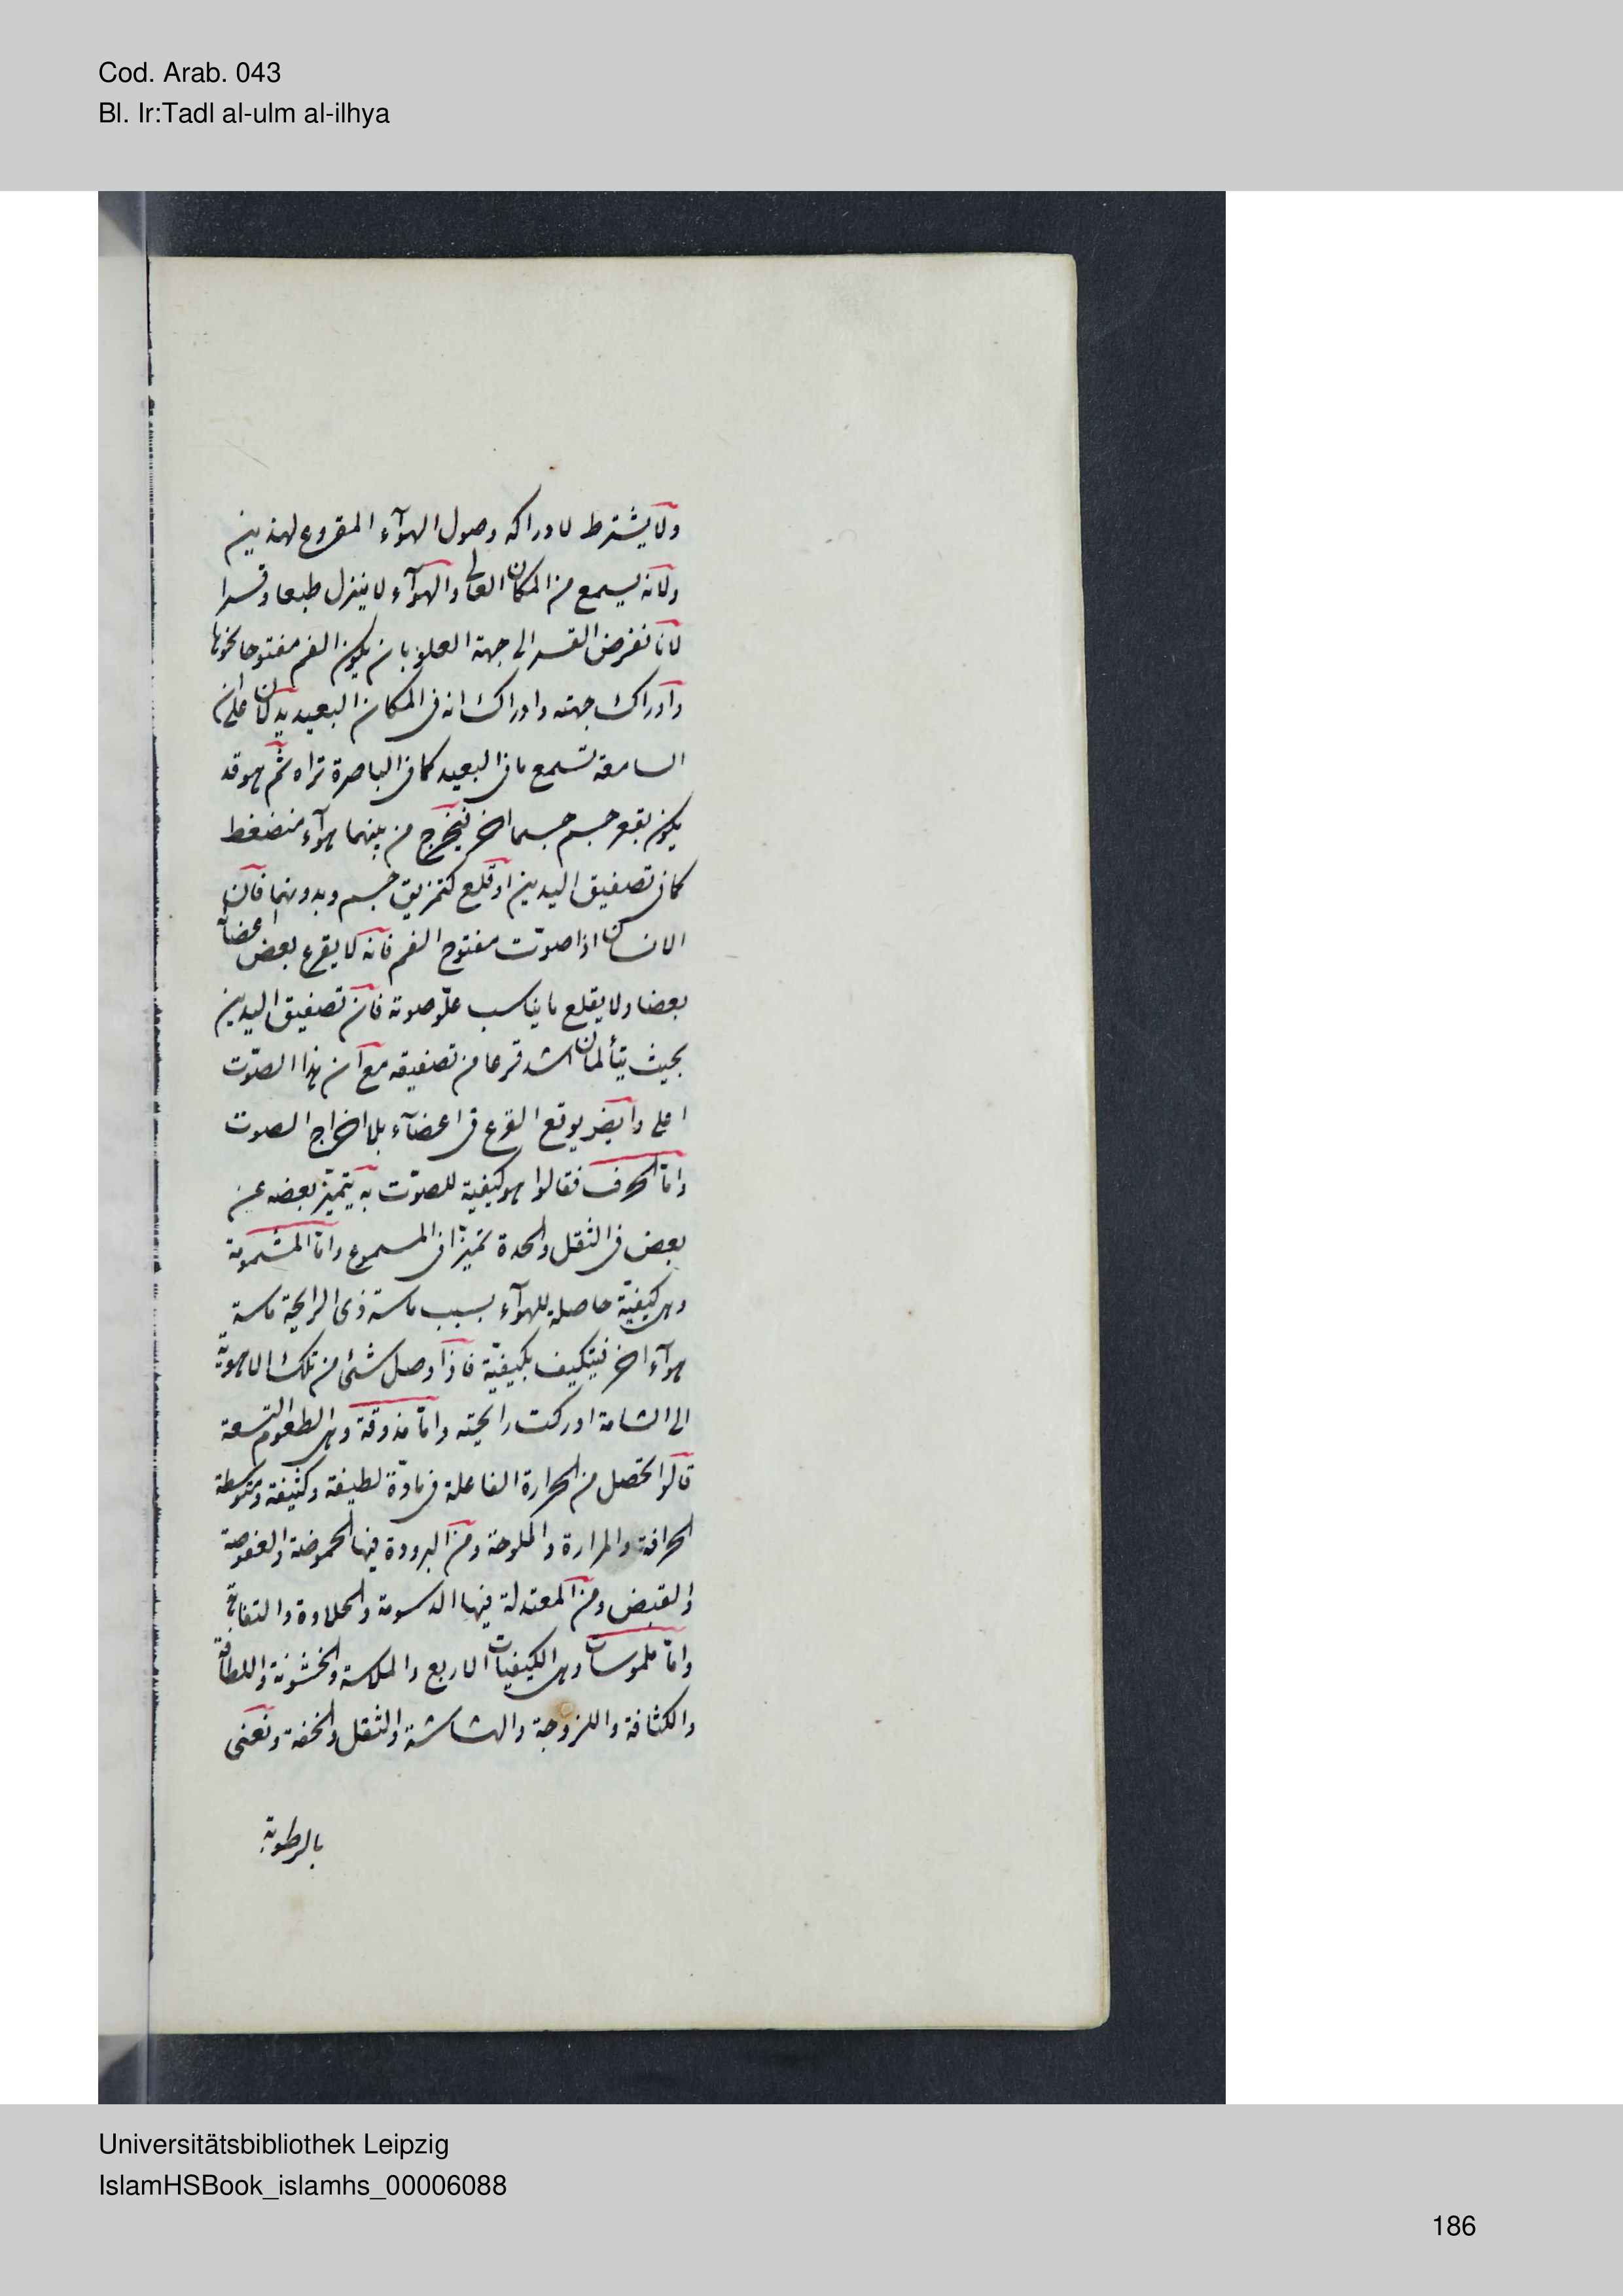 Cod. Arab. 043
Bl. Ir:Tadl al-ulm al-ilhya
ولا يشترط لادراكه وصول الهوآء المقروع لهذين
ولانه يسمع من المكان العالى والهوآء لا ينزل طبعا وقسرا
لانا نفرض القسر الى جهة العلو بان يكون الفم مفتوحا نحوها
وادراك جهته وادراك انه فى المكان البعيد يدلان على ان
السامعة تسمع ما فى البعيد كما فى الباصرة تراه ثم هو قد
يكون بقرع جسم جسما اخر فيخرج من بينهما هوآء منضغط
كما فى تصفيق اليدين او قلع كتمزيق جسم وبدونهما فان
الانسان اذا صوّت مفتوح الفم فانه لا يقرع بعض اعضائه
بعضا ولا يقلع ما يناسب علوّ صوته فان تصفيق اليدين
بحيث يتألمان اشد قرعا من تصفيقه مع ان هذا الصّوت
اعلى وايضا يوقع القرع فى اعضآء بلا اخراج الصوت
وامّا الحرف فقالوا هو كيفية للصوّت به يتميّز بعضه عن
بعض فى الثقل والحدة تميّزا فى المسموع وامّا المشمومة
وهى كيفيّة حاصلة للهوآء بسبب ماسة ذى الرايحة ماسة
هوآء اخر فيتكيف بكيفيّة فاذا وصل شئ من تلك الاهويّة
الى الشامة ادركت رايحته وامّا مذوقة وهى الطعوم التسعة
قالوا تحصل من الحرارة الفاعلة فى مادّة لطيفة وكثيفة ومتوسطة
الحرافة والمرارة والملوحة ومن البرودة فيها الحموضة والعفوصة
والقبض ومن المعتدلة فيها الدسومة والحلاوة والتفاهة
وامّا ملموسات وهى الكيفيات الاربع والملاسة والخشونة واللطافة
والكثافة واللزوجة والهشاشة والثقل والخفة ونعنى
بالرطوبة
Universitätsbibliothek Leipzig
IslamHSBook_islamhs_00006088
186